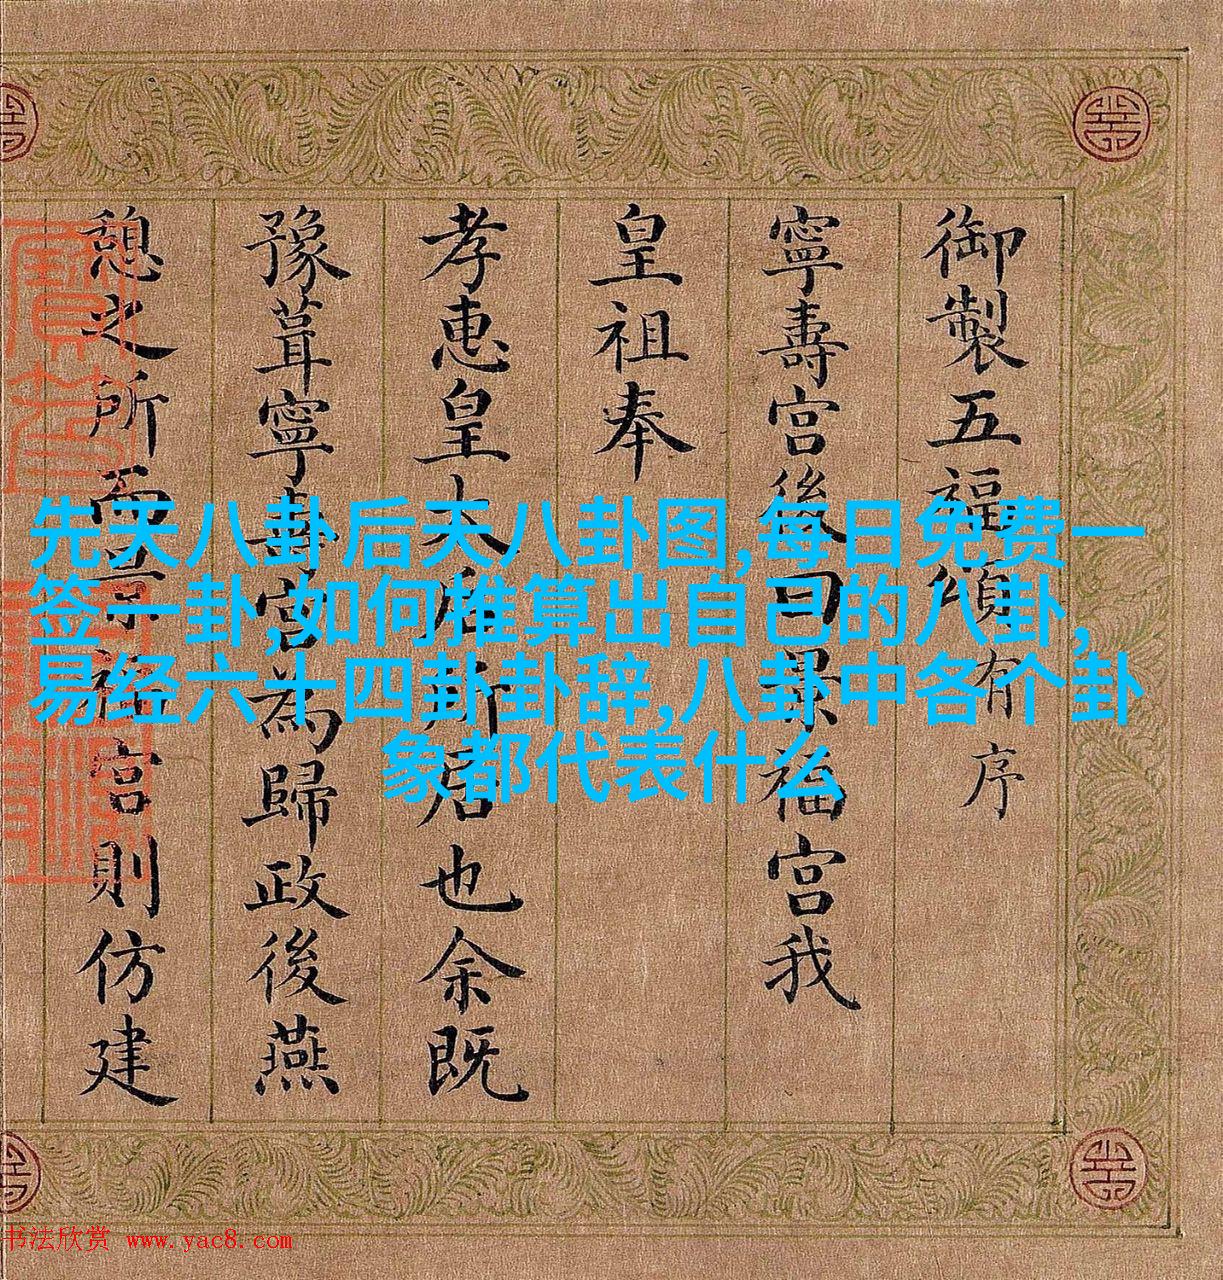 御製五福頌有序
寧壽宮後曰景福宮我
皇祖奉
孝惠皇太后所居也余既
豫葺寧壽宮為歸政後燕
憩之所而景福宮則仿建
先天八卦后天八卦图,每日免费一
签一卦,如何推算出自己的八卦,
易经六十四卦卦辞,八卦中各个卦
象都代表什么
书法欣赏 www.yac8.com